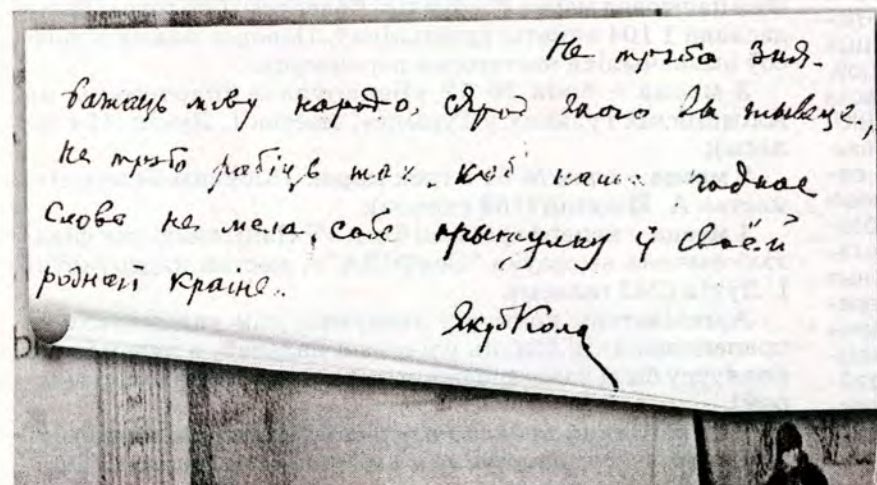 Не трэба зня-
важаць мову народа, сярод якога Вы жывяце,
не трэба рабіць так, каб наша роднае
слова не мела сабе прытулку ў сваёй
роднай краіне..
Якуб Кола